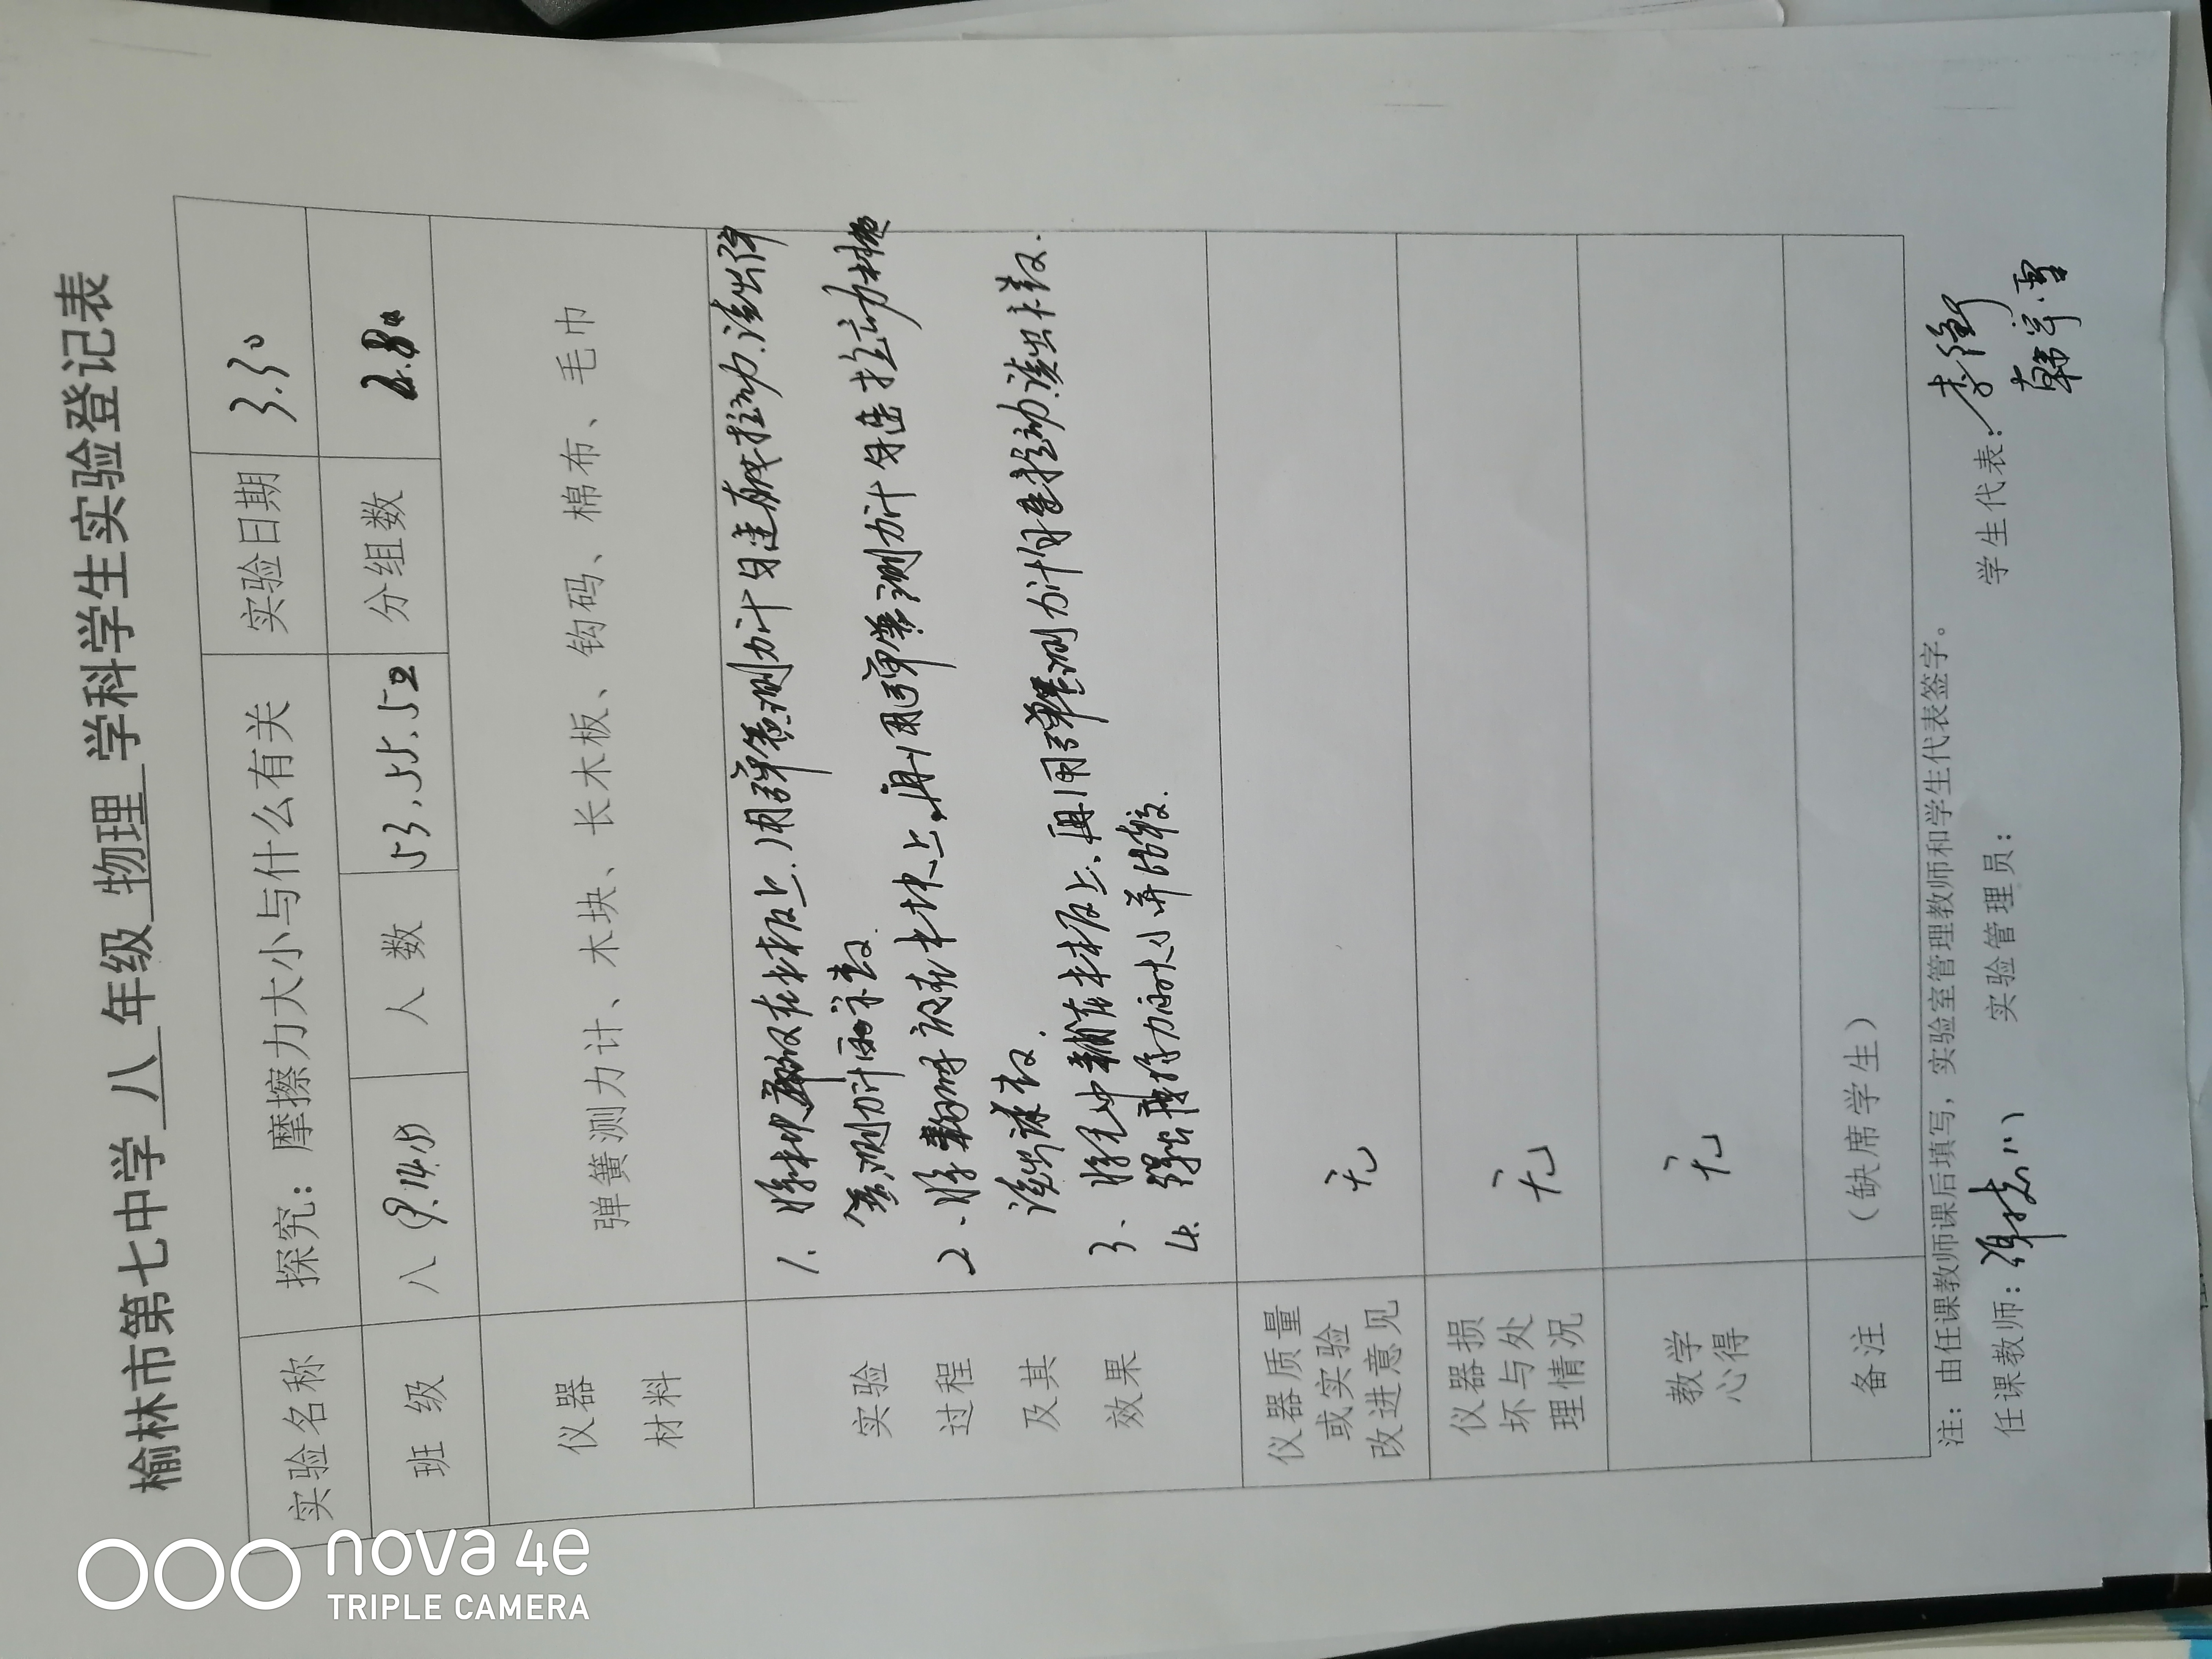 榆林市第七中学 八 年级 物理 学科学生实验登记表
实验名称 探究：摩擦力大小与什么有关 实验日期 3.30
班 级 八（9.14.15） 人 数 53.55.52 分组数 28
仪器 材料 弹簧测力计、木块、长木板、钩码、棉布、毛巾
实验 过程 及其 效果
1. 将木块放在木板上，用弹簧测力计匀速拉动，读出弹
簧测力计的示数
2、将钩码放在木块上，再用弹簧测力计匀速拉动木块
读出读数.
3、将毛巾铺在木板上，再用弹簧测力计匀速拉动读出示数.
4. 得出摩擦力的大小并比较.
仪器质量 或实验 改进意见 无
仪器损 坏与处 理情况 无
教学 心得 无
备注 （缺席学生）
注：由任课教师课后填写，实验室管理教师和学生代表签字。
任课教师： 实验管理员： 学生代表：李
韩 雪
nova 4e
TRIPLE CAMERA